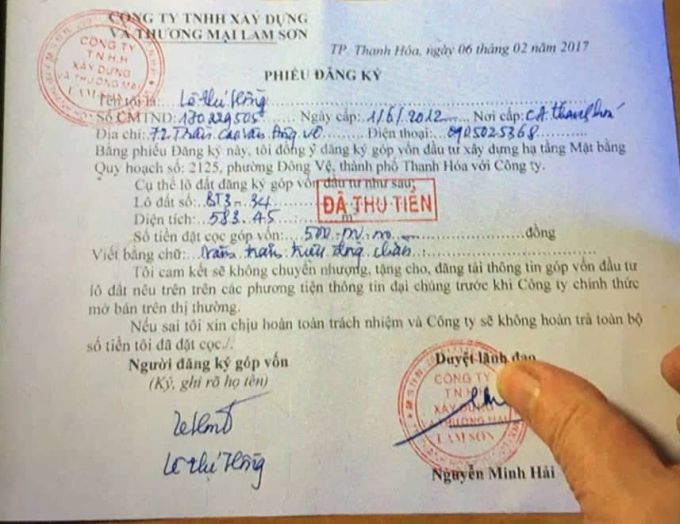 CÔNG TY TNHH XÂY DỰNG
VÀ THƯƠNG MẠI LAM SƠN
CÔNG TY
T.N.H.H
XÂY DỰNG
VÀ THƯƠNG MẠI
LAM SƠN
TP. Thanh Hóa, ngày 06 tháng 02 năm 2017
PHIẾU ĐĂNG KÝ
Tên tôi là: Lê Thị Hồng
Số CMTND: 170229505 Ngày cấp: 1/6/2012 Nơi cấp: CA Thanh Hoá
Địa chỉ: 72 Trần Cao Vân Điện thoại: 0905025368
Bằng phiếu Đăng ký này, tôi đồng ý đăng ký góp vốn đầu tư xây dựng hạ tầng Mặt bằng
Quy hoạch số: 2125, phường Đông Vệ, thành phố Thanh Hóa với Công ty.
Cụ thể lô đất đăng ký góp vốn đầu tư như sau:
Lô đất số: BT3-34
ĐÃ THU TIỀN
Diện tích: 583.45 m
Số tiền đặt cọc góp vốn: 500. đồng
Viết bằng chữ: Năm trăm triệu đồng chẵn
Tôi cam kết sẽ không chuyển nhượng, tặng cho, đăng tải thông tin góp vốn đầu tư
lô đất nêu trên trên các phương tiện thông tin đại chúng trước khi Công ty chính thức
mở bán trên thị thường.
Nếu sai tôi xin chịu hoàn toàn trách nhiệm và Công ty sẽ không hoàn trả toàn bộ
số tiền tôi đã đặt cọc./.
Người đăng ký góp vốn
(Ký, ghi rõ họ tên)
Lê Thị Hồng
Duyệt lãnh đạo
CÔNG TY
T.N.H.H
XÂY DỰNG
VÀ THƯƠNG MẠI
LAM SƠN
Nguyễn Minh Hải